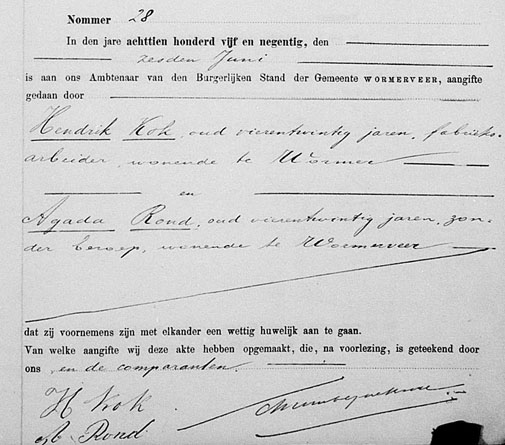 Nommer 28
In den jare achttien honderd vijf en negentig, den
zesden Juni
is aan ons Ambtenaar van den Burgerlijken Stand der Gemeente WORMERVEER, aangifte
gedaan door
Hendrik Kok, oud vierentwintig jaren, fabrieks-
arbeider, wonende te Wormer
en
Agada Rond, oud vierentwintig jaren, zon-
der beroep, wonende te Wormerveer
dat zij voornemens zijn met elkander een wettig huwelijk aan te gaan.
Van welke aangifte wij deze akte hebben opgemaakt, die, na voorlezing, is geteekend door
ons en de comparanten.
H Kok
A Rond